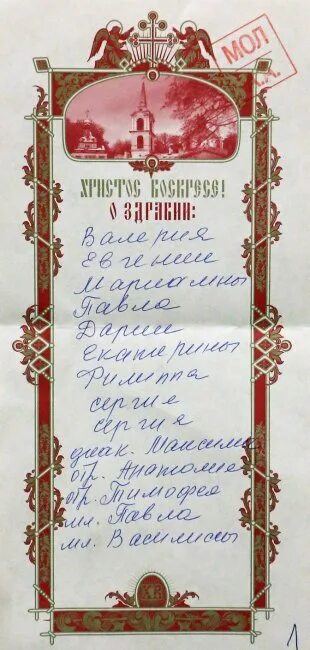 МОЛ
.А.
ХРИСТОС ВОСКРЕСЕ!
О ЗДРАВИИ:
Валерия
Евгении
Мариамны
Павла
Дарии
Екатерины
Филиппа
Сергие
Сергия
диак. Максима
отр. Анатолие
отр. Тимофея
мл. Павла
мл. Василисы
1